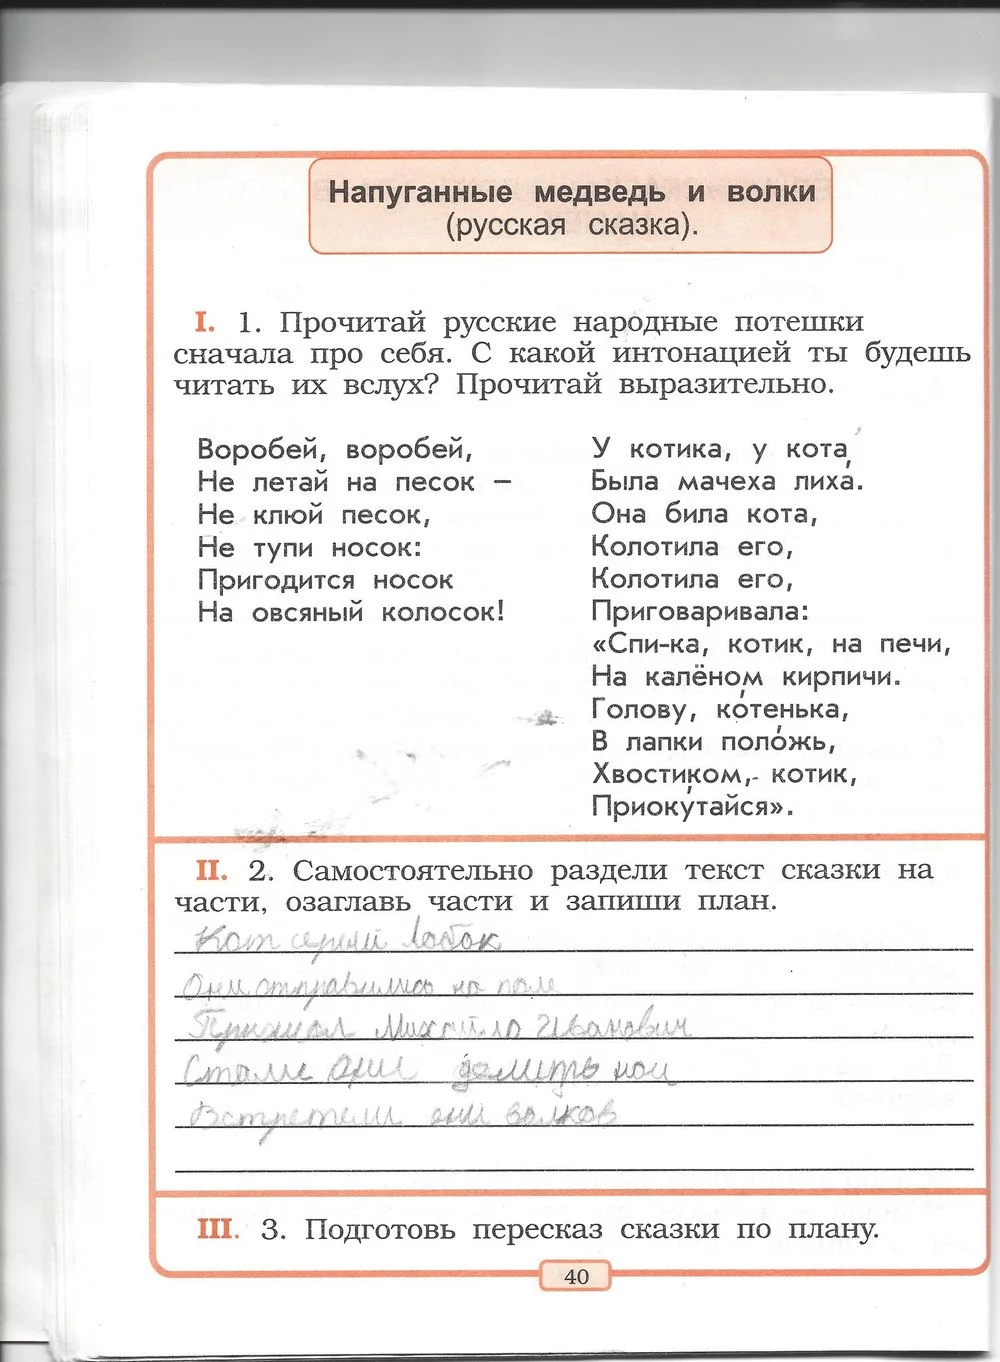 Напуганные медведь и волки
(русская сказка).
I. 1. Прочитай русские народные потешки
сначала про себя. С какой интонацией ты будешь
читать их вслух? Прочитай выразительно.
Воробей, воробей,
Не летай на песок –
Не клюй песок,
Не тупи носок:
Пригодится носок
На овсяный колосок!
У котика, у кота
Была мачеха лиха́.
Она била кота,
Колотила его,
Колотила его,
Приговаривала:
«Спи-ка, котик, на печи,
На калёном кирпичи.
Голову, ко́тенька,
В лапки поло́жь,
Хвостиком, котик,
Приоку́тайся».
II. 2. Самостоятельно раздели текст сказки на
части, озаглавь части и запиши план.
Кот серый
Они отправились на поле
Михайло Иванович
Стали они
Встретели они волков
III. 3. Подготовь пересказ сказки по плану.
40